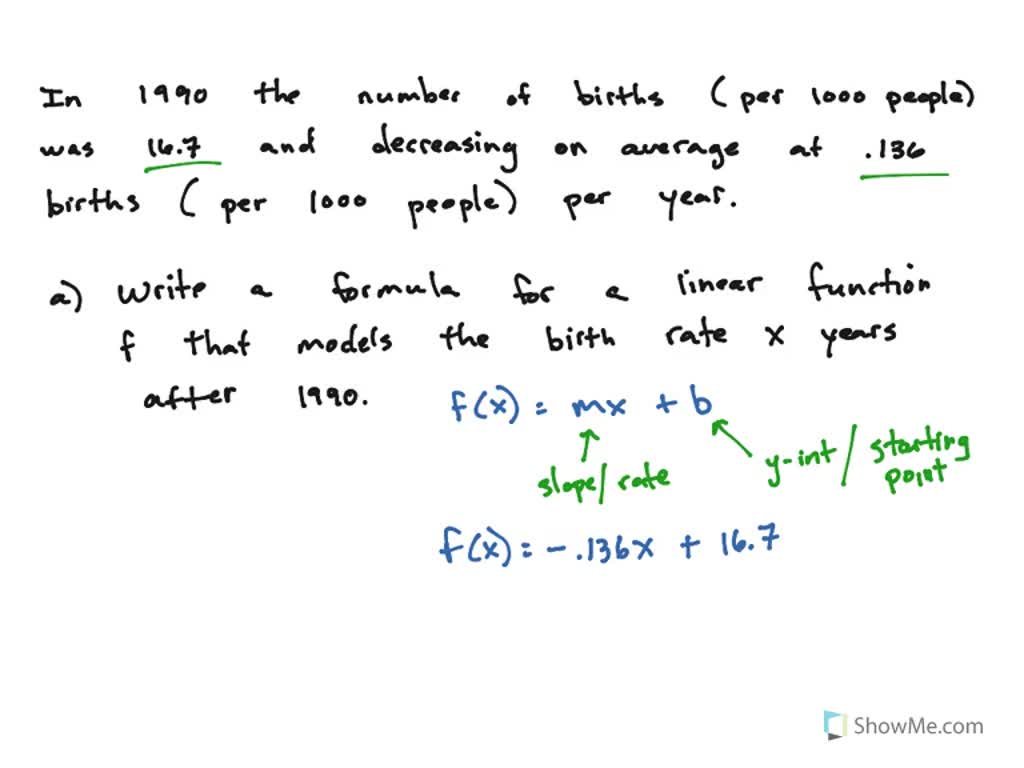 In 1990 the number of births (per 1000 people)
was 16.7 and decreasing on average at .136
births (per 1000 people) per year.
a) Write a formula for a linear function
f that models the birth rate x years
after 1990.
f(x) = mx + b
slope/rate
y-int / starting point
f(x) = -.136x + 16.7
ShowMe.com